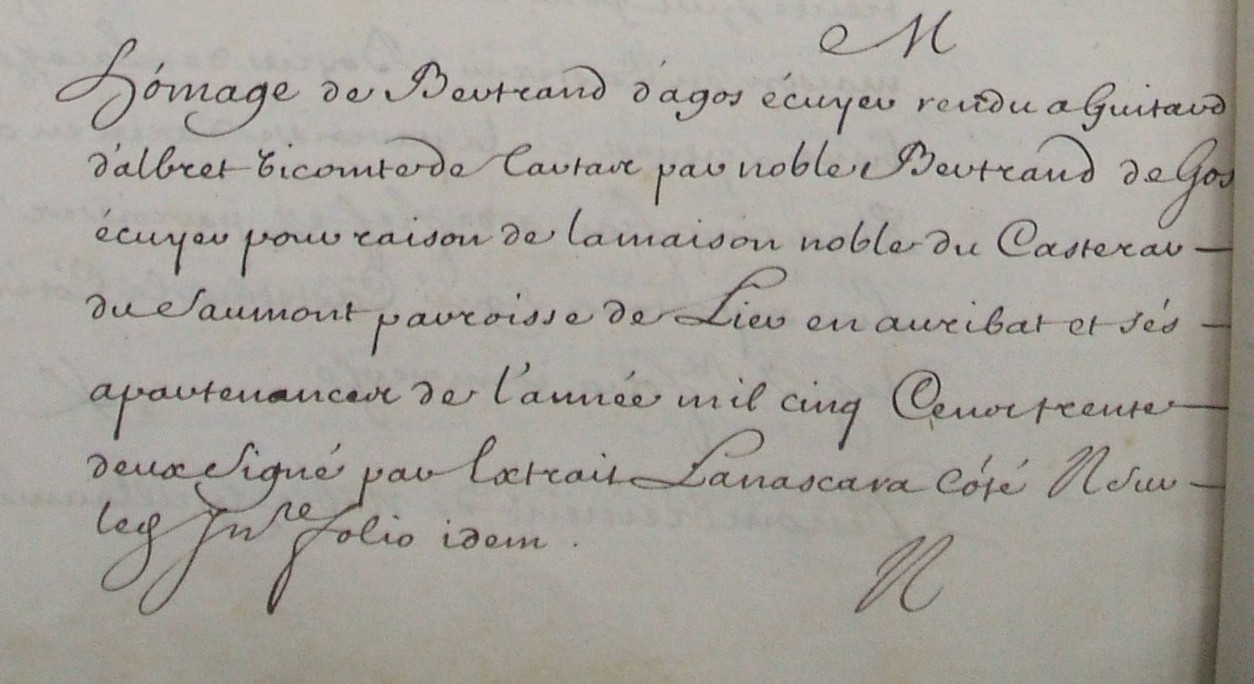 M
Hómage de Bertrand d'agos écuyer rendu a Guitard
d'albret Vicomte de Tartas par noble Bertrand de Gos
écuyer pour raison de la maison noble du Casterar
du Saumont parroisse de Lier en auribat et sés
apartenances de l'année mil cinq Cens trente
deux Signé par Extrait Lanascara Côté N Sur
led Inre folio idem .
N